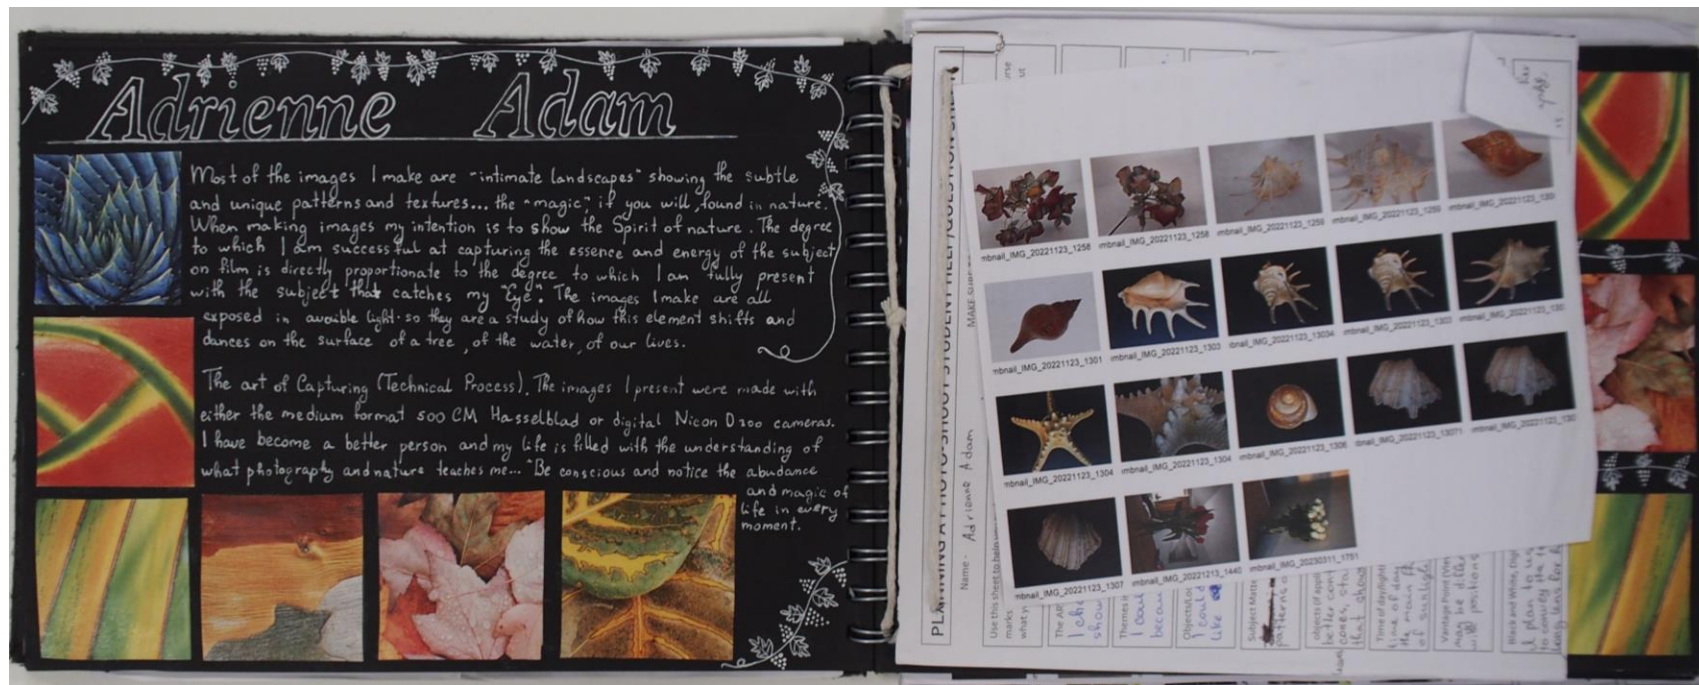 Adrienne Adam
Most of the images I make are "intimate landscapes" showing the subtle
and unique patterns and textures... the "magic", if you will, found in nature.
When making images my intention is to show the Spirit of nature. The degree
to which I am successful at capturing the essence and energy of the subject
on film is directly proportionate to the degree to which I am fully present
with the subject that catches my "Eye". The images I make are all
exposed in avaible light-so they are a study of how this element shifts and
dances on the surface of a tree, of the water, of our lives.
The art of Capturing (Technical Process). The images I present were made with
either the medium format 500 CM Hasselblad or digital Nicon D200 cameras.
I have become a better person and my life is filled with the understanding of
what photography and nature teaches me... "Be conscious and notice the abundance
and magic of
life in every
moment.
PLANNING A PHOTO-SHOOT STUDENT HELP/QUESTION SHEET
Name - Adrienne Adam
Use this sheet to help
marks
what
mbnail_IMG_20221123_1258 mbnail_IMG_20221123_1258 mbnail_IMG_20221123_1259 mbnail_IMG_20221123_1259 mbnail_IMG_20221123_130
mbnail_IMG_20221123_1301 mbnail_IMG_20221123_1303 ibnail_IMG_20221123_13034 mbnail_IMG_20221123_1303 mbnail_IMG_20221123_130
mbnail_IMG_20221123_1304 mbnail_IMG_20221123_1304 mbnail_IMG_20221123_1306 mbnail_IMG_20221123_13071 mbnail_IMG_20221123_130
mbnail_IMG_20221123_1307 mbnail_IMG_20221213_1440 mbnail_IMG_20230311_1751
The
show
Themes
I
becau
Objects/Loc
I could
like
Subject Matte
patterns o
objects (of appl
better con
cones,
that show
Time of day/light
time of day
the main
of sunligh
Vantage Point
may be
will position
Black and White, Dig
I plan to us
to convey the
long lens for